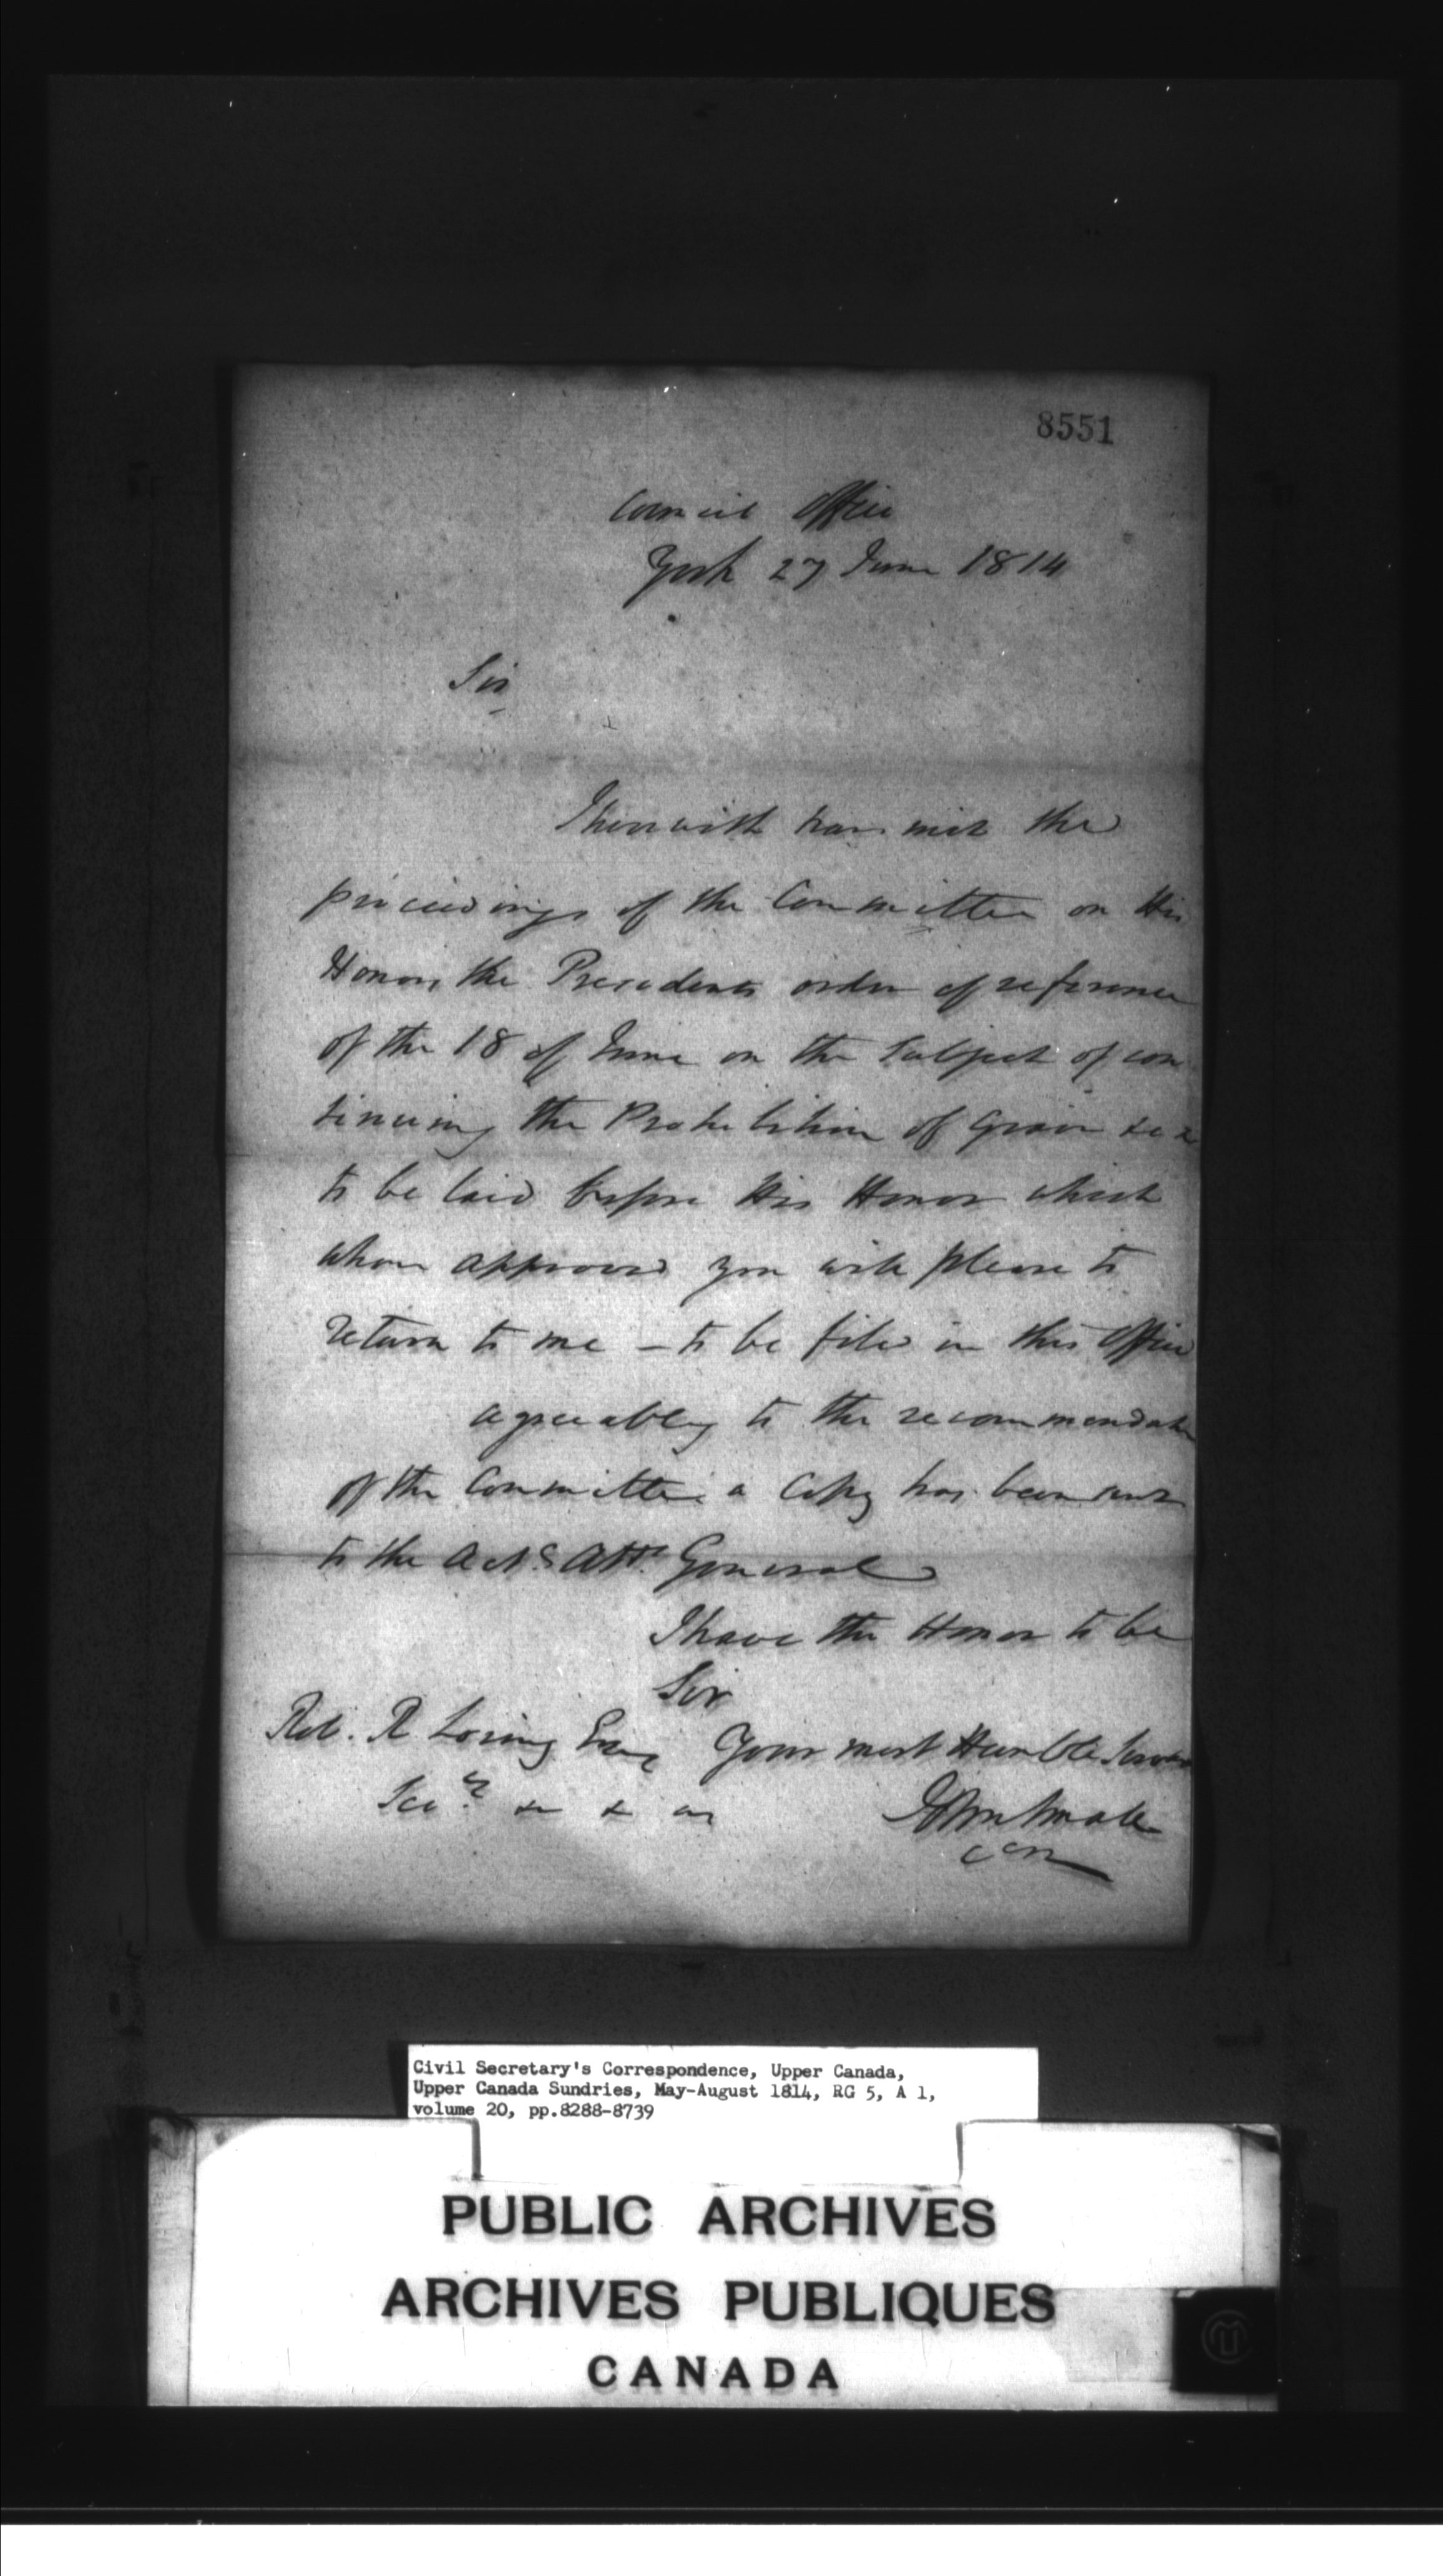 8551
Council Office
York 27 June 1814
Sir
I herewith transmit the
proceedings of the Committee on His
Honor the Presidents order of reference
of the 18 of June on the Subject of con
tinuing the Prohibition of Grain &c &
to be laid before His Honor which
when approved you will please to
return to me – to be filed in this Office
agreeably to the recommendation
of the Committee a Copy has been sent
to the Actg Atty General
I have the Honor to be
Sir
Rob. R Loring Esq Your most Humble Servant
Secy &c & &c
John Small
CEC
Civil Secretary's Correspondence, Upper Canada,
Upper Canada Sundries, May-August 1814, RG 5, A 1,
volume 20, pp.8288-8739
PUBLIC ARCHIVES
ARCHIVES PUBLIQUES
CANADA